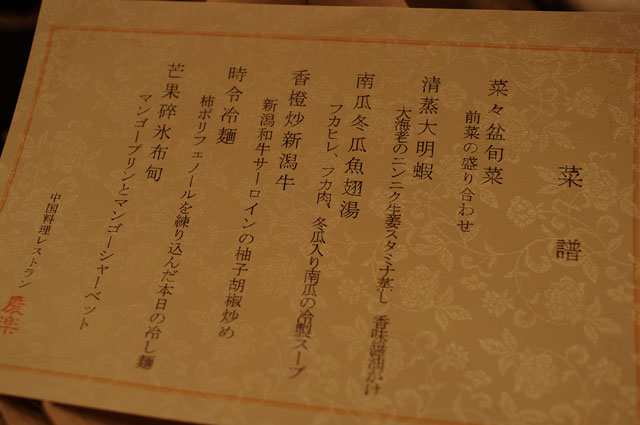 菜譜
菜々盆旬菜
前菜の盛り合わせ
清蒸大明蝦
大海老のニンニク生姜スタミナ蒸し 香味醤油かけ
南瓜冬瓜魚翅湯
フカヒレ、フカ肉、冬瓜入り南瓜の冷製スープ
香橙炒新潟牛
新潟和牛サーロインの柚子胡椒炒め
時令冷麺
柿ポリフェノールを練り込んだ本日の冷し麺
芒果碎氷布甸
マンゴープリンとマンゴーシャーベット
中国料理レストラン
慶楽